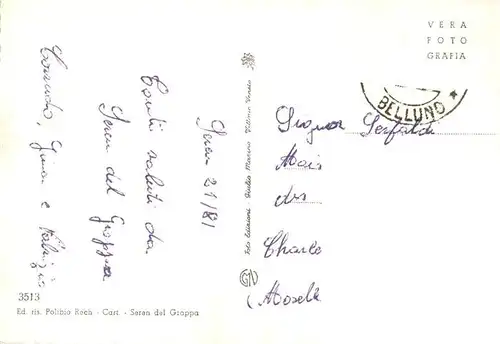 VERA
FOTO
GRAFIA
BELLUNO
Seren 21/81
Tanti saluti da
Seren del Grappa
e Fabrizio
Signor
Mais
des
Charle
Moselle
Foto Edizione - Giulio Marino Vittorio Veneto
3513
Ed. ris. Polibio Rech - Cart. - Seren del Grappa